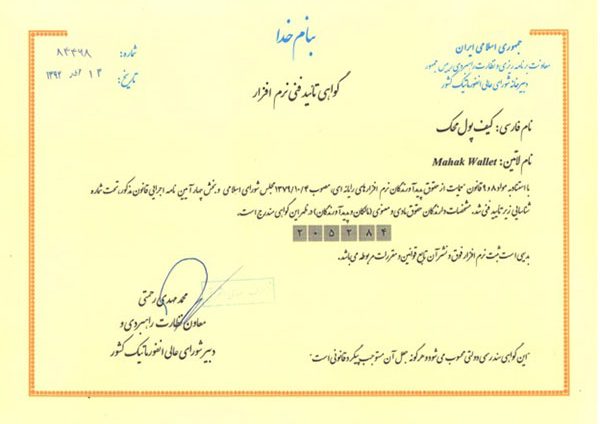 بنام خدا
جمهوری اسلامی ایران
معاونت برنامه ریزی و نظارت راهبردی رییس جمهور
دبیرخانه شورای عالی انفورماتیک کشور
شماره: ۸۳۴۶۸
تاریخ: ۱۴ آذر ۱۳۹۲
گواهی تائید فنی نرم افزار
نام فارسی: کیف پول محک
نام لاتین: Mahak Wallet
با استناد مواد ۸ و ۹ قانون حمایت از حقوق پدیدآورندگان نرم افزارهای رایانه ای، مصوب ۱۳۷۹/۱۰/۴ مجلس شورای اسلامی و بخش چهار آیین نامه اجرایی قانون مذکور، تحت شماره
شناسایی زیر تایید فنی شد. مشخصات دارندگان حقوق مادی و معنوی (مالکان و پدیدآورندگان) در ظهر این گواهی مندرج است.
۲۰۵۲۸۴
بدیهی است ثبت نرم افزار فوق و نشر آن تابع قوانین و مقررات مربوطه می باشد.
محمد مهدی رحمتی
معاون نظارت راهبردی و
دبیر شورای عالی انفورماتیک کشور
"این گواهی سند رسمی دولتی محسوب می شود و هرگونه جعل آن مستوجب پیگرد قانونی است"